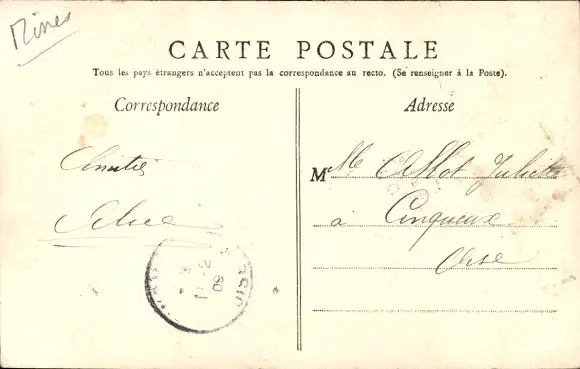 Mines
CARTE POSTALE
Tous les pays étrangers n'acceptent pas la correspondance au recto. (Se renseigner à la Poste).
Correspondance
Adresse
Amitié
M lle Allot Juliette
à Cinqueux
Oise
11-2
09